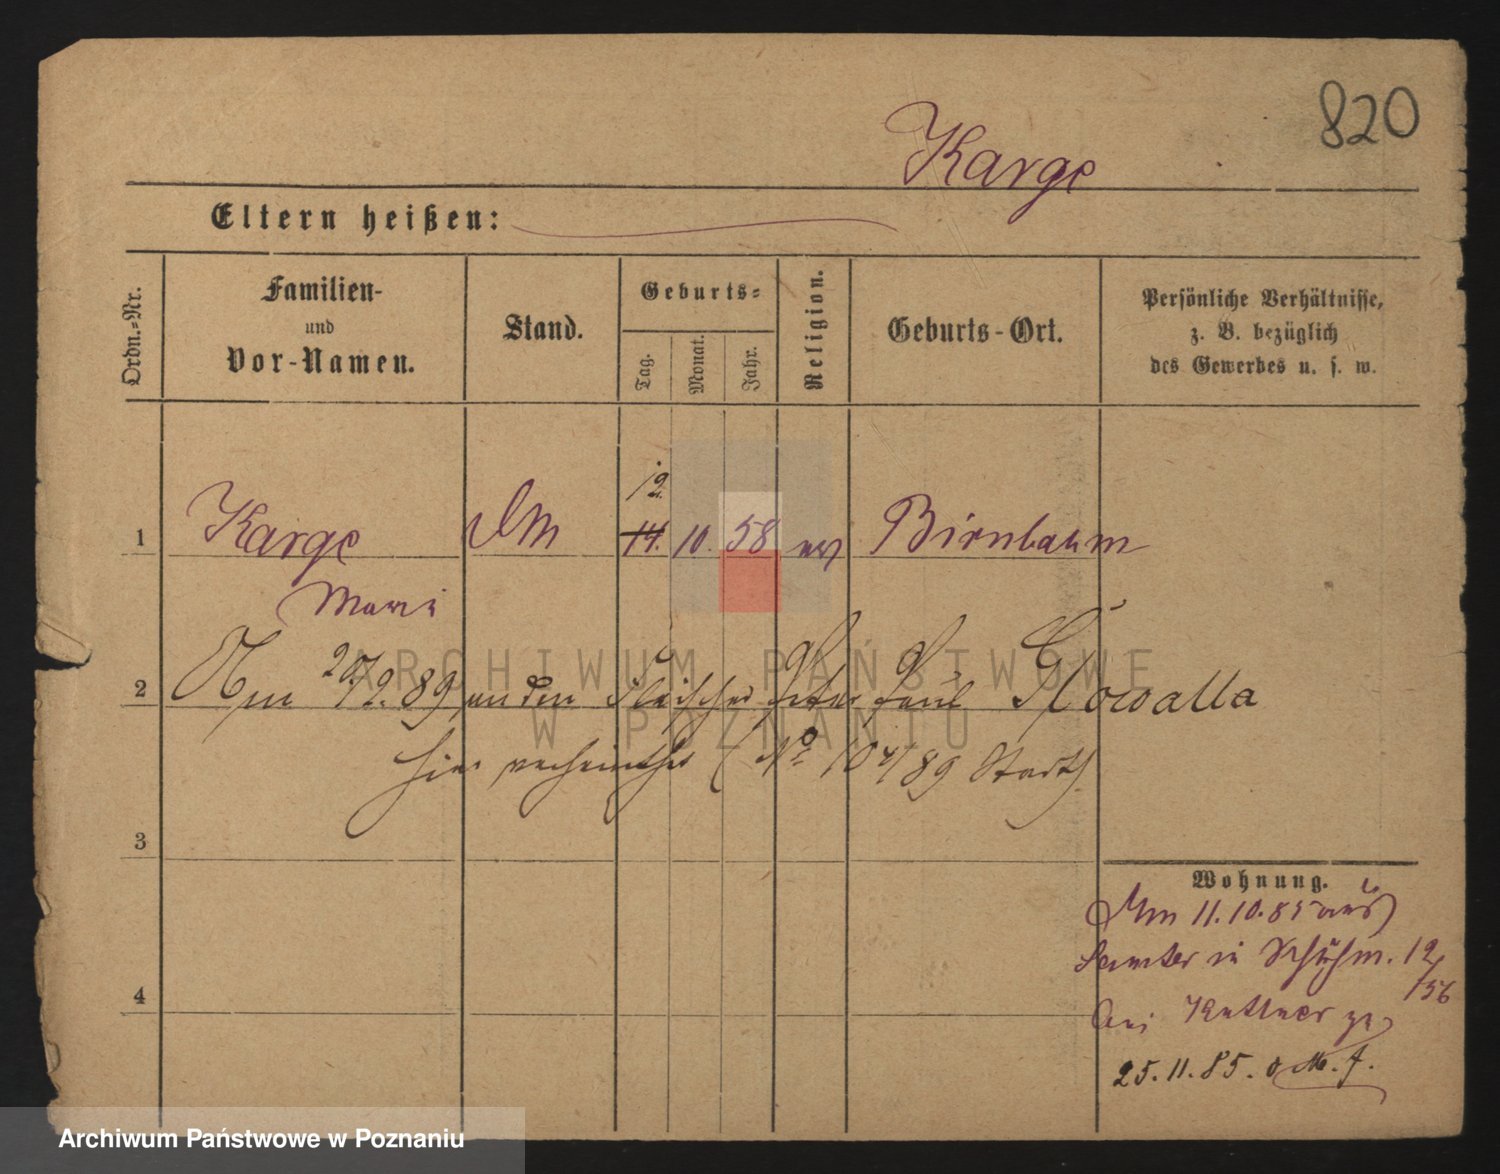 820
Karge
Eltern heißen:
Ordn.-Nr.
Familien-
und
Vor-Namen.
Stand.
Geburts-
Tag.
Monat.
Jahr.
Religion.
Geburts-Ort.
Persönliche Verhältnisse,
z. B. bezüglich
des Gewerbes u. s. w.
12.
1 Karge 14. 10. 58 ev Birnbaum
Marie
2 Am 20/12.89 an den Fleischer Peter Paul Slowalla
hier verheirathet (No 104/89 Stdt)
3
Wohnung.
Am 11.10.85 aus
Samter in Schuhm. 12
/56
4
bei Kuttner zu
25.11.85. o M. f.
ARCHIWUM PAŃSTWOWE
W POZNANIU
Archiwum Państwowe w Poznaniu